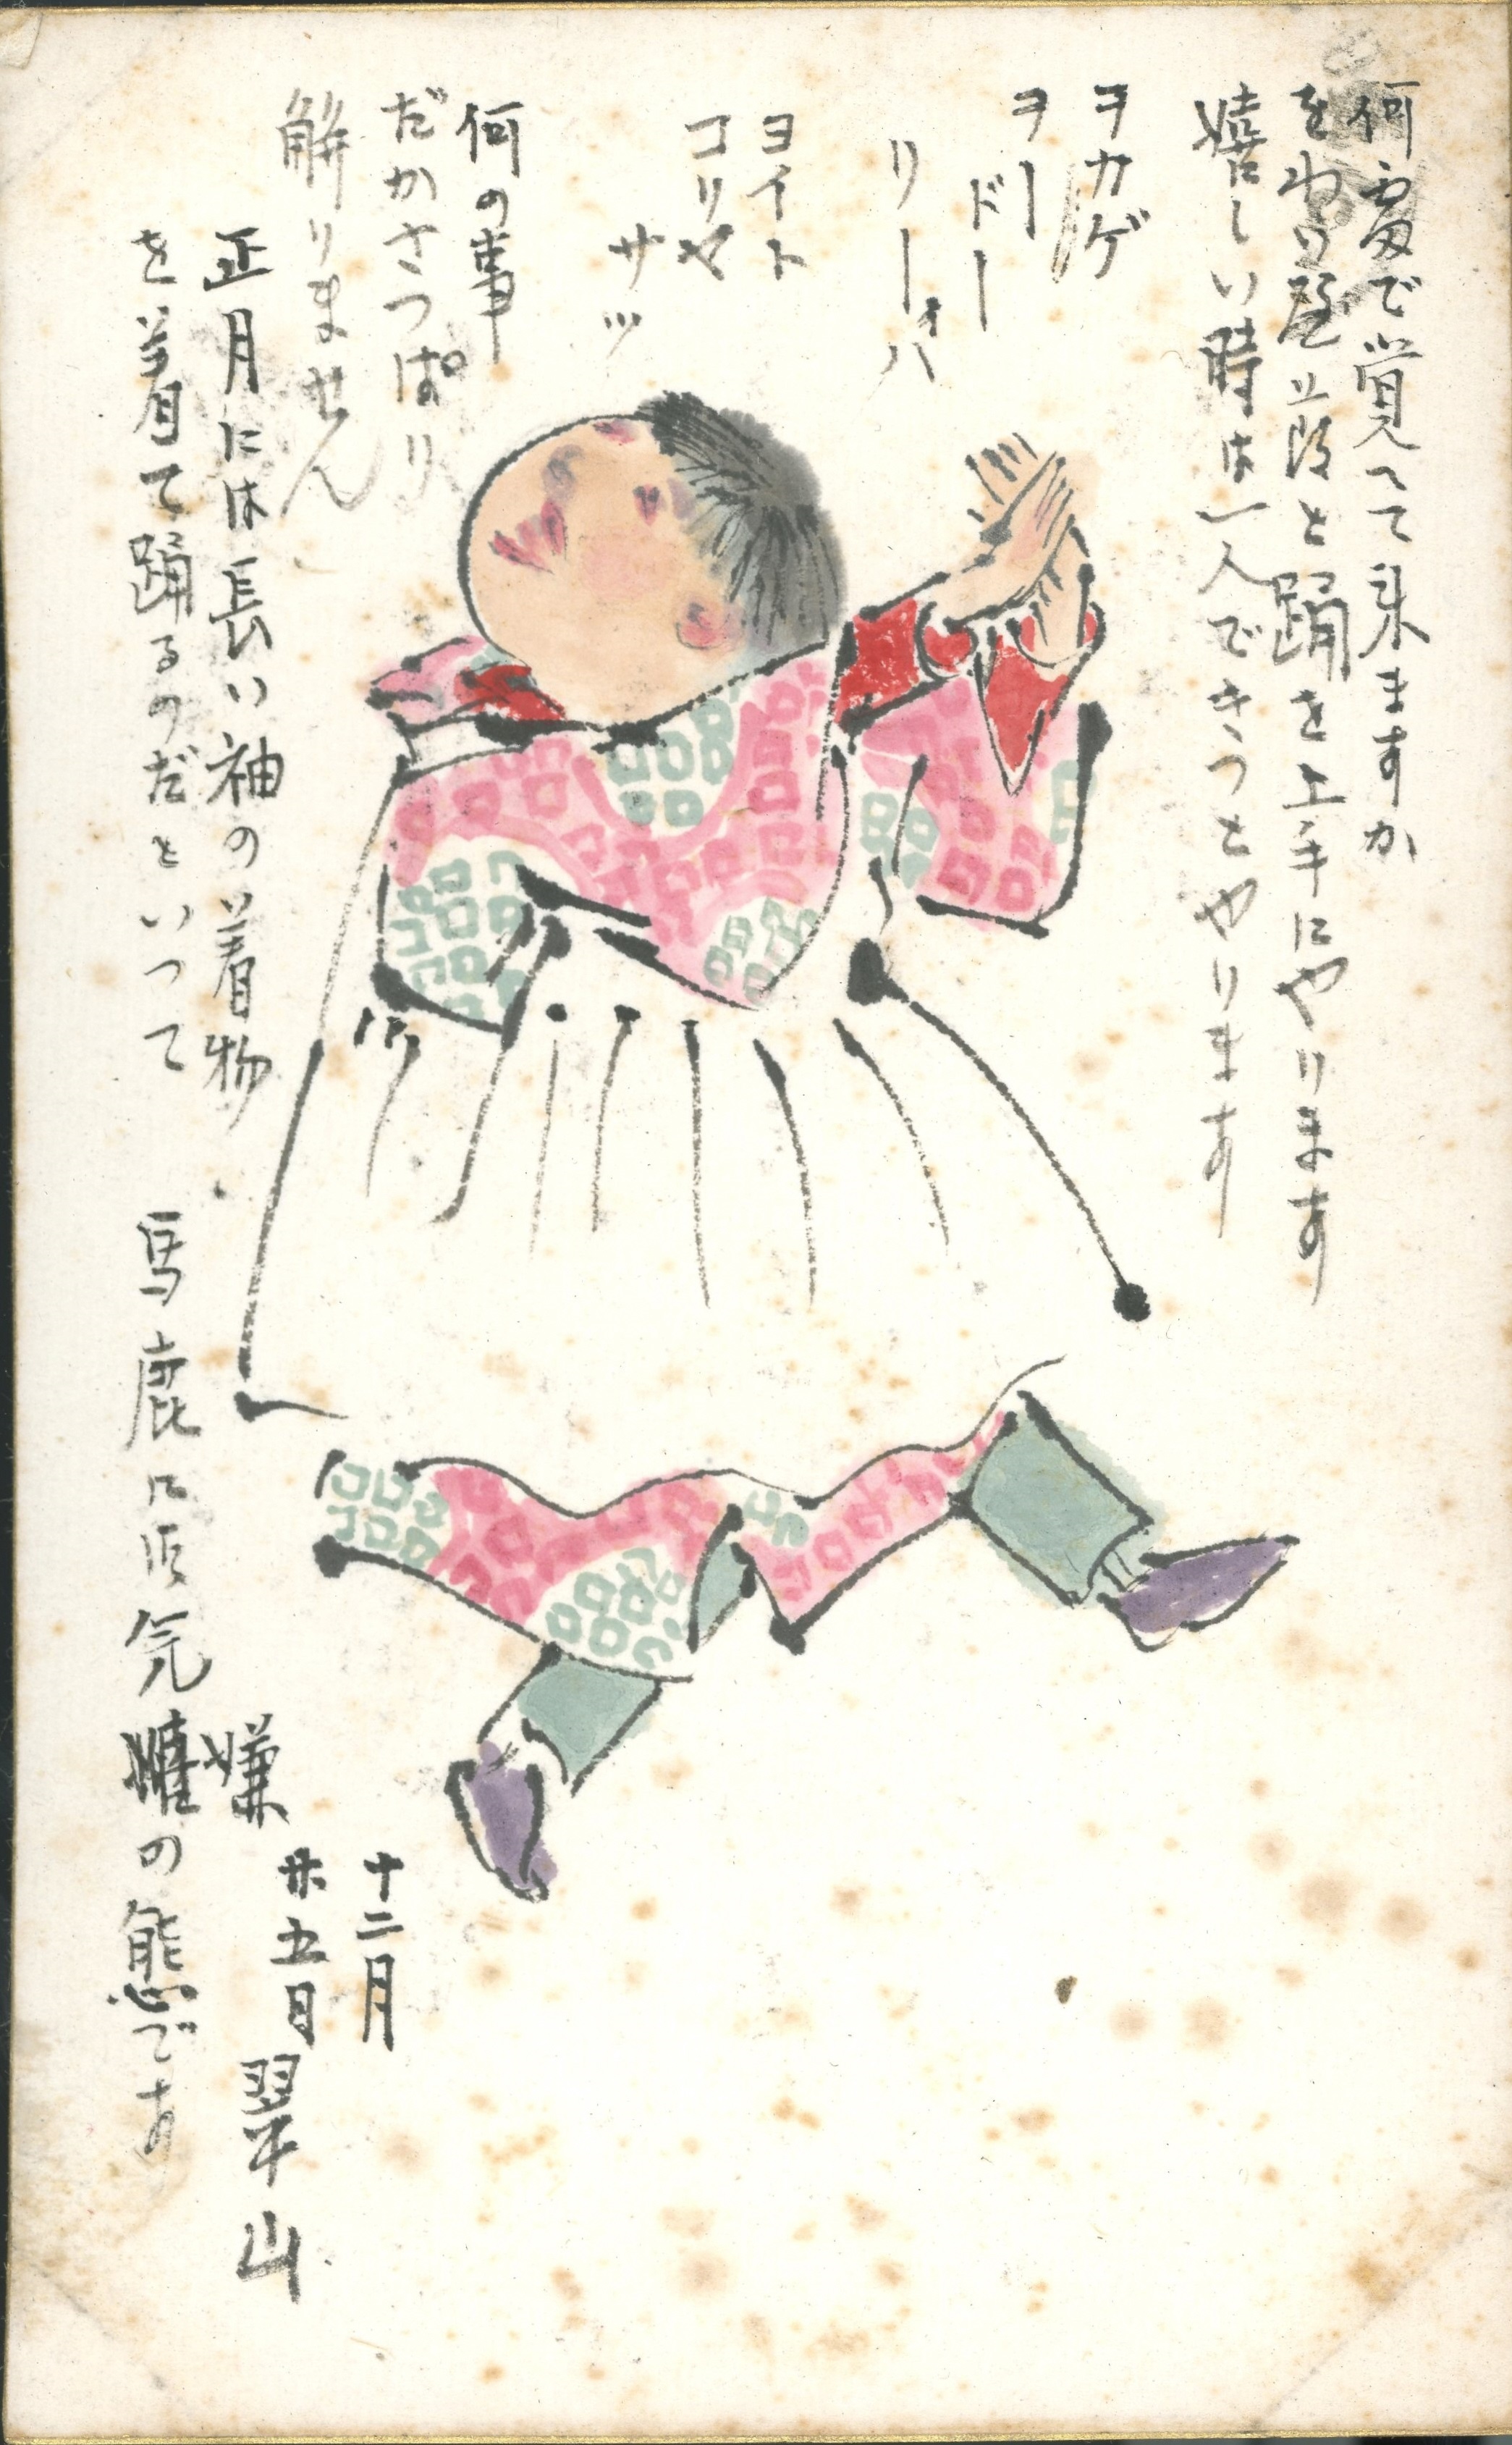 何處で覚へて来ますか
と踊を上手にやります
嬉しい時は一人できつとやります
ヲカゲ
ヲー
ドー
リーオハ
ヨイト
コリヤ
サッ
何の事
だかさつぱり
解りません
正月には長い袖の着物
を着て踊るのだといつて
馬鹿に 気嫌の態です
十二月
廿五日
翠山